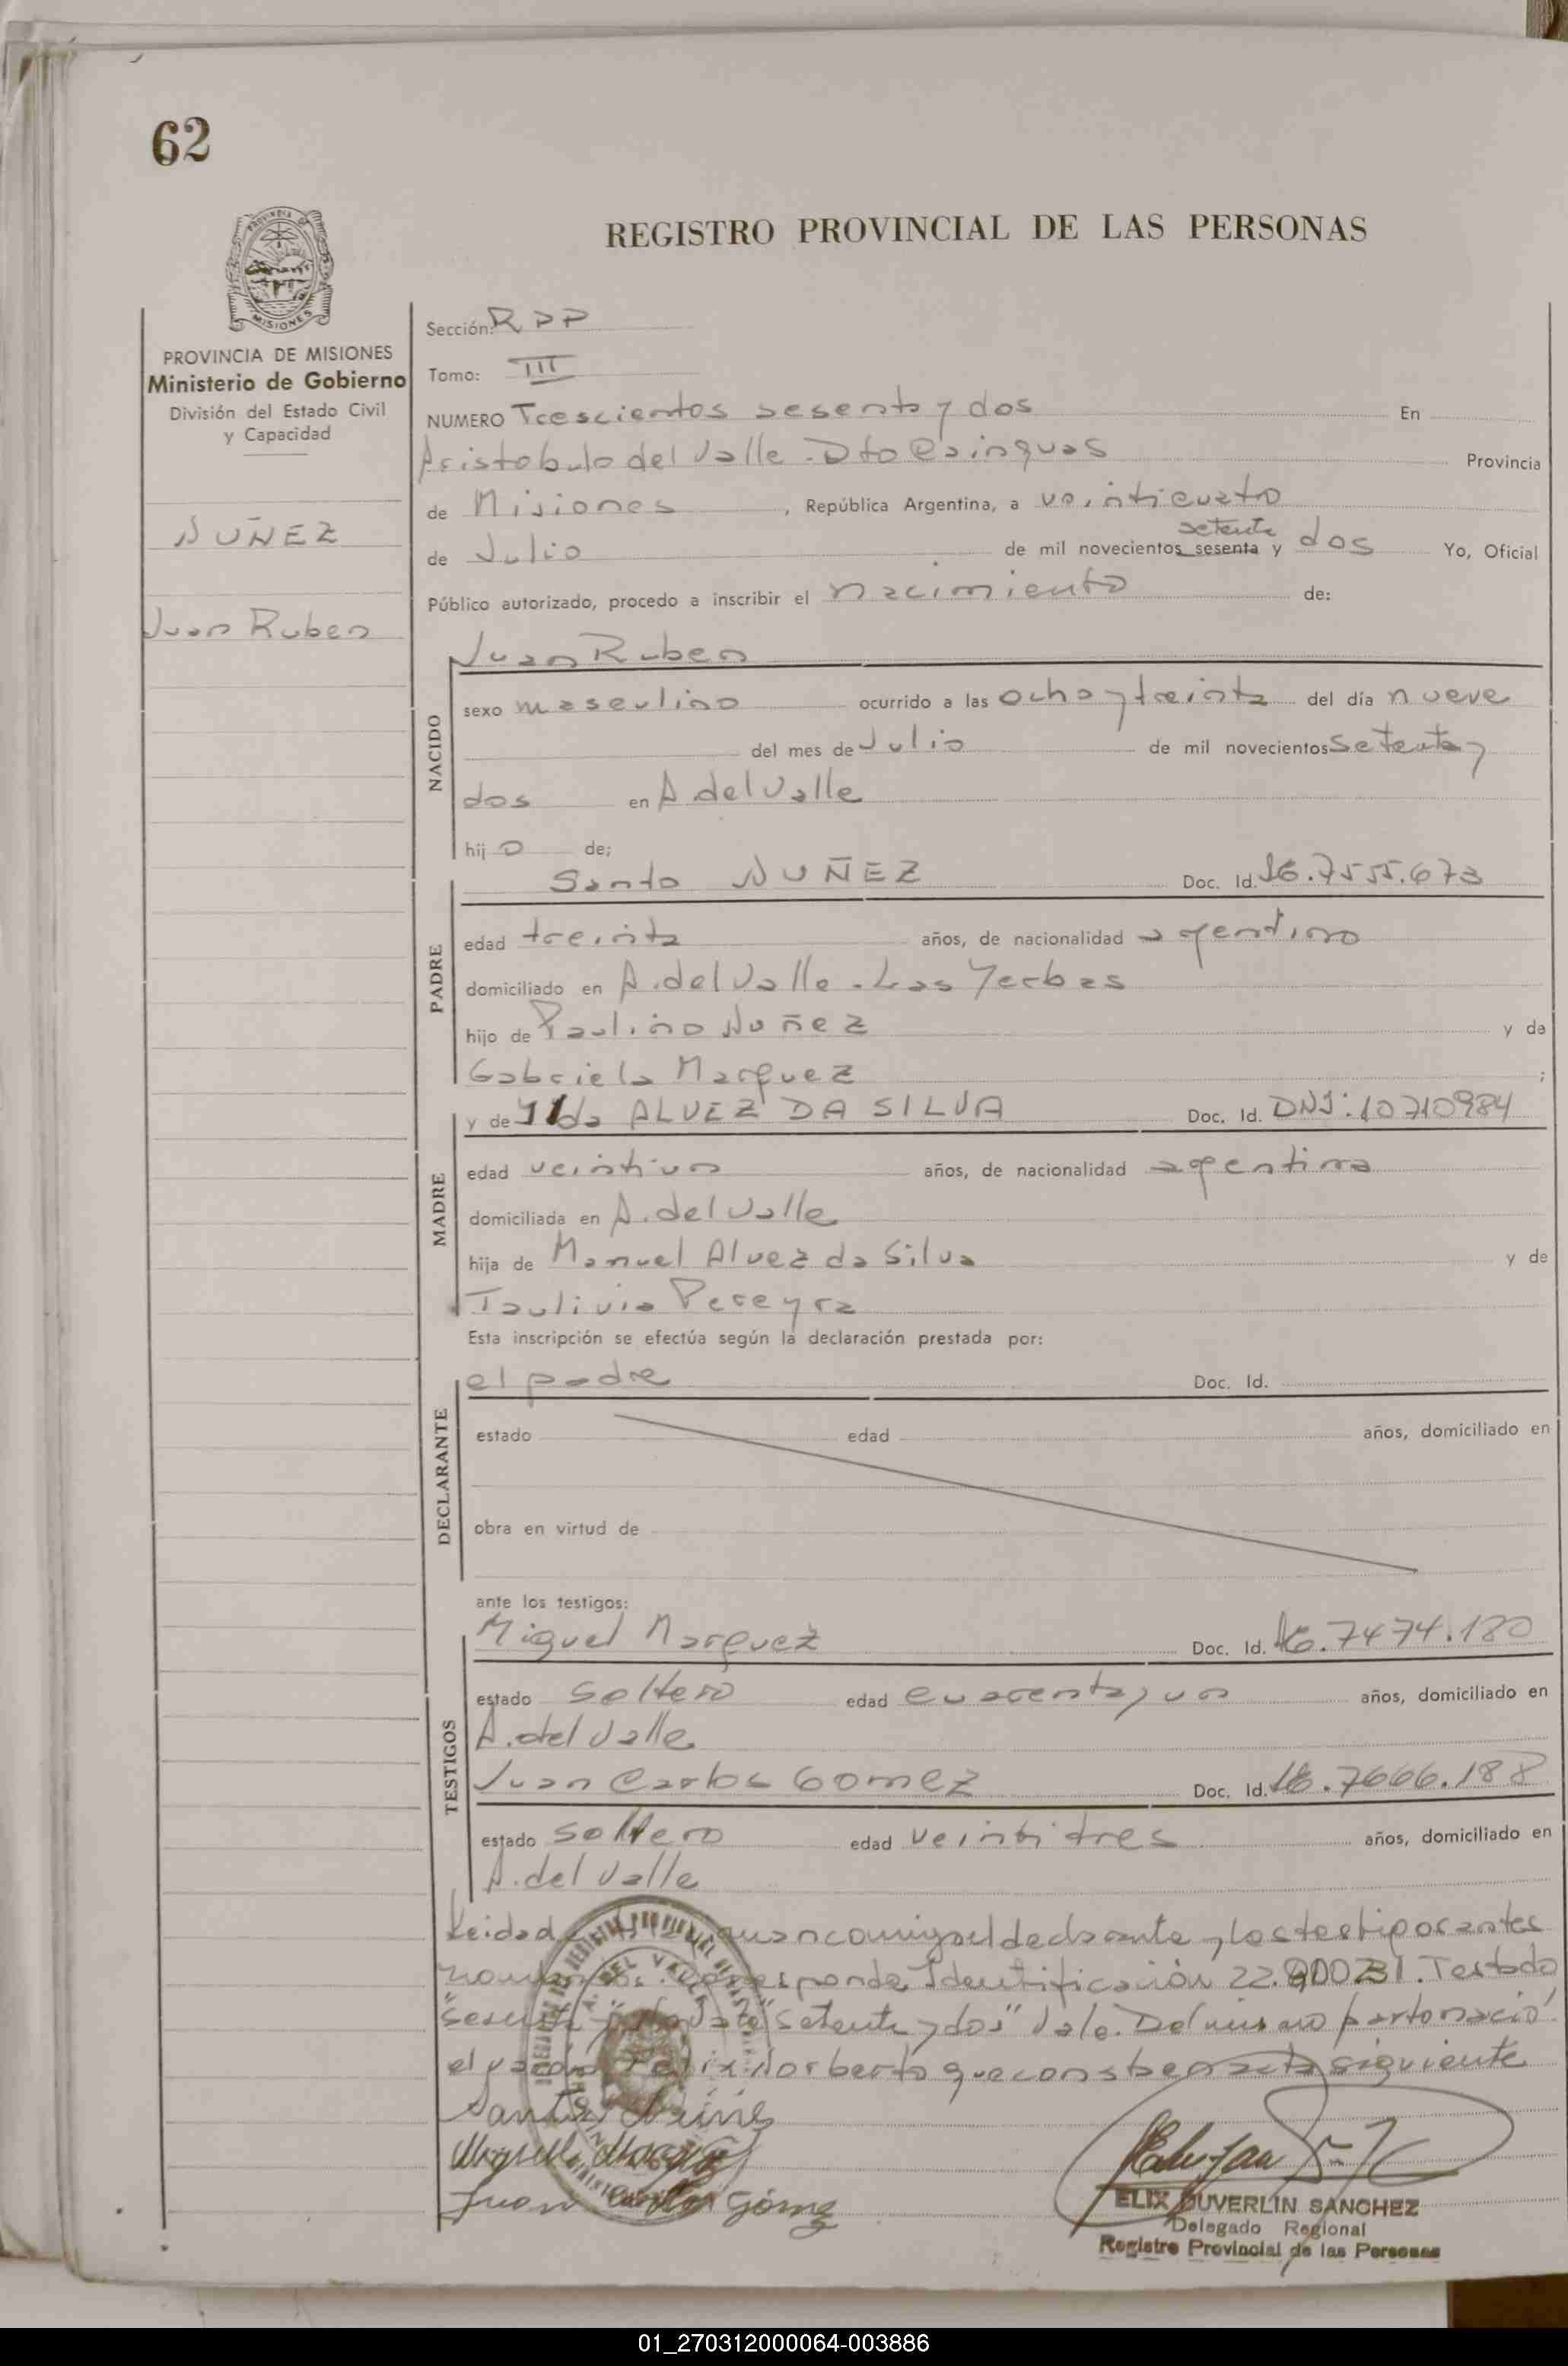 62
REGISTRO PROVINCIAL DE LAS PERSONAS
MISIONES
PROVINCIA DE MISIONES
Ministerio de Gobierno
División del Estado Civil
y Capacidad
NUÑEZ
Juan Ruben
Sección: RPP
Tomo: III
NUMERO Trescientos sesenta y dos En
Aristobulo del Valle - Dto Cainguas Provincia
de Misiones, República Argentina, a veinticuatro
setenta
de Julio de mil novecientos sesenta y dos Yo, Oficial
Público autorizado, procedo a inscribir el nacimiento de:
Juan Ruben
NACIDO
sexo masculino ocurrido a las ocho y treinta del día nueve
del mes de Julio de mil novecientos setenta y
dos en A del Valle
hij o de;
PADRE
Santo NUÑEZ Doc. Id. 16.7555.673
edad treinta años, de nacionalidad argentino
domiciliado en A. del Valle - Las Yerbas
hijo de Paulino Nuñez y de
Gabriela Marquez ;
MADRE
y de Ilda ALVEZ DA SILVA Doc. Id. DNI: 10710984
edad veintiun años, de nacionalidad argentina
domiciliada en A. del Valle
hija de Manuel Alvez da Silva y de
Taulivia Pereyra
Esta inscripción se efectúa según la declaración prestada por:
DECLARANTE
el padre Doc. Id.
estado edad años, domiciliado en
obra en virtud de
ante los testigos:
TESTIGOS
Miguel Marquez Doc. Id. 16.7474.180
estado soltero edad cuarenta y un años, domiciliado en
A. del Valle
Juan Carlos GOMEZ Doc. Id. 16.7666.188
estado soltero edad veintitres años, domiciliado en
A. del Valle
Leida conmigo el declarante y los testigos antes
Corresponde Identificación Testado
"setenta y dos" Vale. Del mismo parto nació
el Norberto que consta en acta siguiente
Juan Carlos Gómez
ELIX DUVERLIN SANCHEZ
Delegado Regional
Registro Provincial de las Personas
01_270312000064-003886